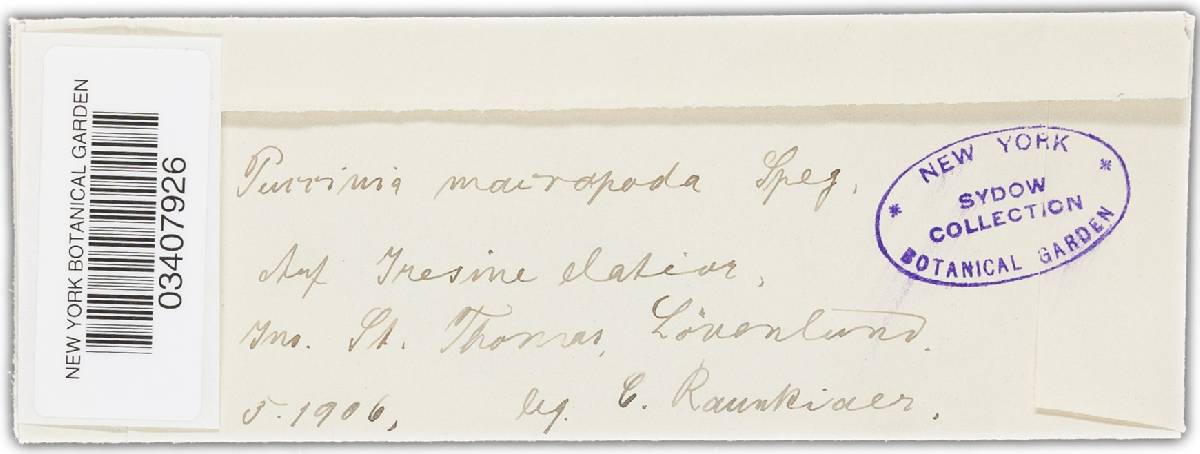 NEW YORK BOTANICAL GARDEN
03407926
Puccinia macropoda Speg.
Auf Iresine elatior,
Ins. St. Thomas, Lövenlund.
5. 1906, leg. C. Raunkiaer.
* NEW YORK *
SYDOW
COLLECTION
BOTANICAL GARDEN